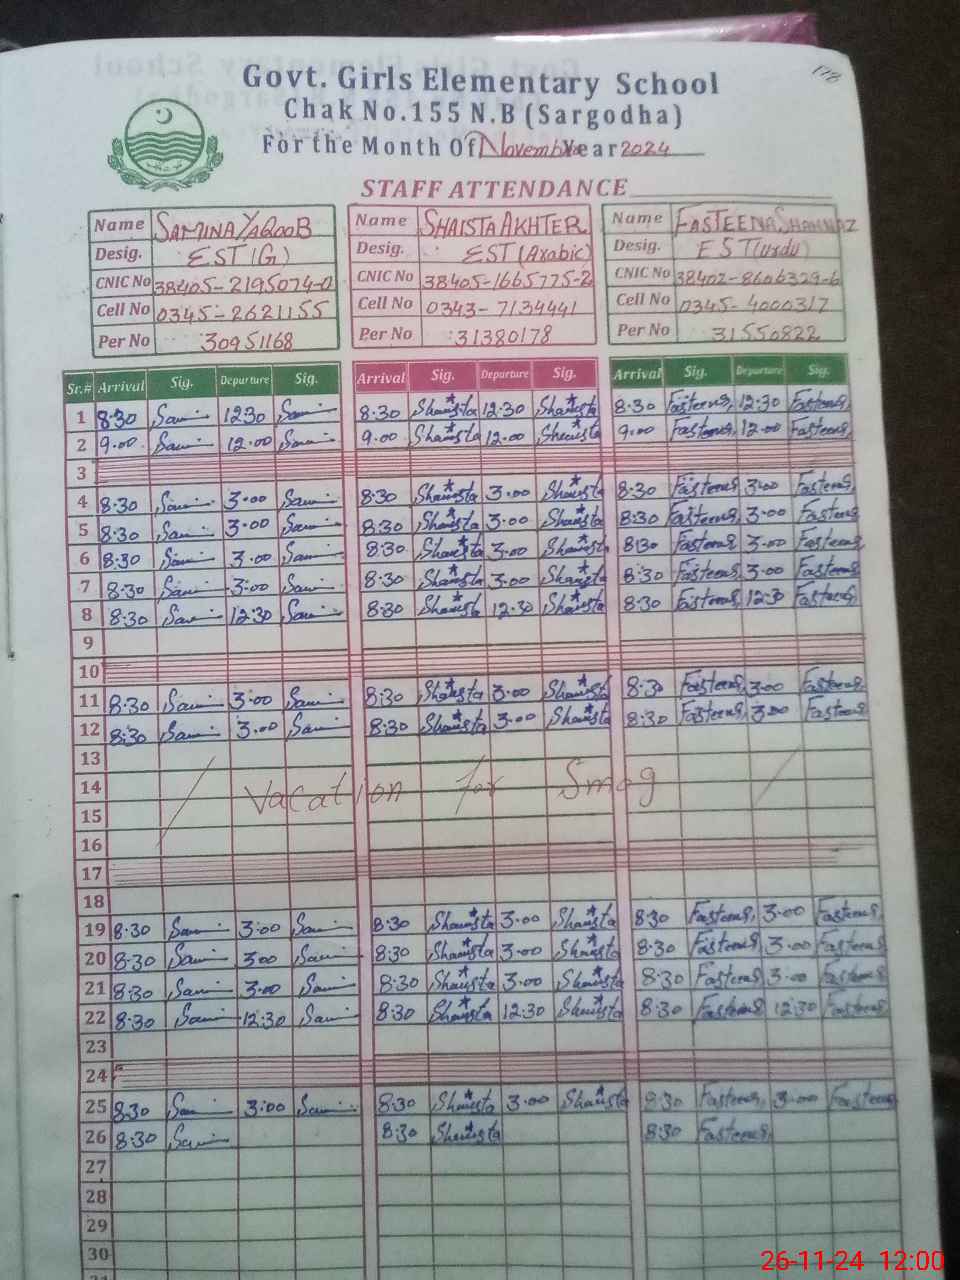 178
Govt. Girls Elementary School
Chak No.155 N.B (Sargodha)
For the Month Of November Year 2024
STAFF ATTENDANCE
Name SAMINA YAQOOB Name SHAISTA AKHTER Name FASTEENA SHAHNAZ
Desig. EST (G) Desig. EST (Arabic) Desig. EST (Urdu)
CNIC No 38405-2195074-0 CNIC No 38405-1665775-2 CNIC No 38402-8606329-6
Cell No 0345-2621155 Cell No 0343-7134441 Cell No 0345-4000317
Per No 30951168 Per No 31380178 Per No 31550822
Sr.# Arrival Sig. Departure Sig. Arrival Sig. Departure Sig. Arrival Sig. Departure Sig.
1 8:30 Sami 12:30 Sami 8:30 Shaista 12:30 Shaista 8:30 Fasteena 12:30 Fasteena
2 9.00 Sami 12.00 Sami 9.00 Shaista 12.00 Shaista 9.00 Fasteena 12.00 Fasteena
3
4 8:30 Sami 3.00 Sami 8:30 Shaista 3.00 Shaista 8:30 Fasteena 3.00 Fasteena
5 8:30 Sami 3.00 Sami 8:30 Shaista 3.00 Shaista 8:30 Fasteena 3.00 Fasteena
6 8:30 Sami 3.00 Sami 8:30 Shaista 3.00 Shaista 8:30 Fasteena 3.00 Fasteena
7 8:30 Sami 3:00 Sami 8:30 Shaista 3.00 Shaista 8:30 Fasteena 3.00 Fasteena
8 8:30 Sami 12:30 Sami 8:30 Shaista 12:30 Shaista 8:30 Fasteena 12:30 Fasteena
9
10
11 8:30 Sami 3:00 Sami 8:30 Shaista 3.00 Shaista 8:30 Fasteena 3.00 Fasteena
12 8:30 Sami 3.00 Sami 8:30 Shaista 3.00 Shaista 8:30 Fasteena 3.00 Fasteena
13
14 Vacation for Smog
15
16
17
18
19 8:30 Sami 3:00 Sami 8:30 Shaista 3.00 Shaista 8:30 Fasteena 3.00 Fasteena
20 8:30 Sami 3.00 Sami 8:30 Shaista 3.00 Shaista 8:30 Fasteena 3.00 Fasteena
21 8:30 Sami 3.00 Sami 8:30 Shaista 3.00 Shaista 8:30 Fasteena 3:00 Fasteena
22 8:30 Sami 12:30 Sami 8:30 Shaista 12:30 Shaista 8:30 Fasteena 12:30 Fasteena
23
24
25 8:30 Sami 3:00 Sami 8:30 Shaista 3.00 Shaista 8:30 Fasteena 3.00 Fasteena
26 8:30 Sami 8:30 Shaista 8:30 Fasteena
27
28
29
30
31
26-11-24 12:00